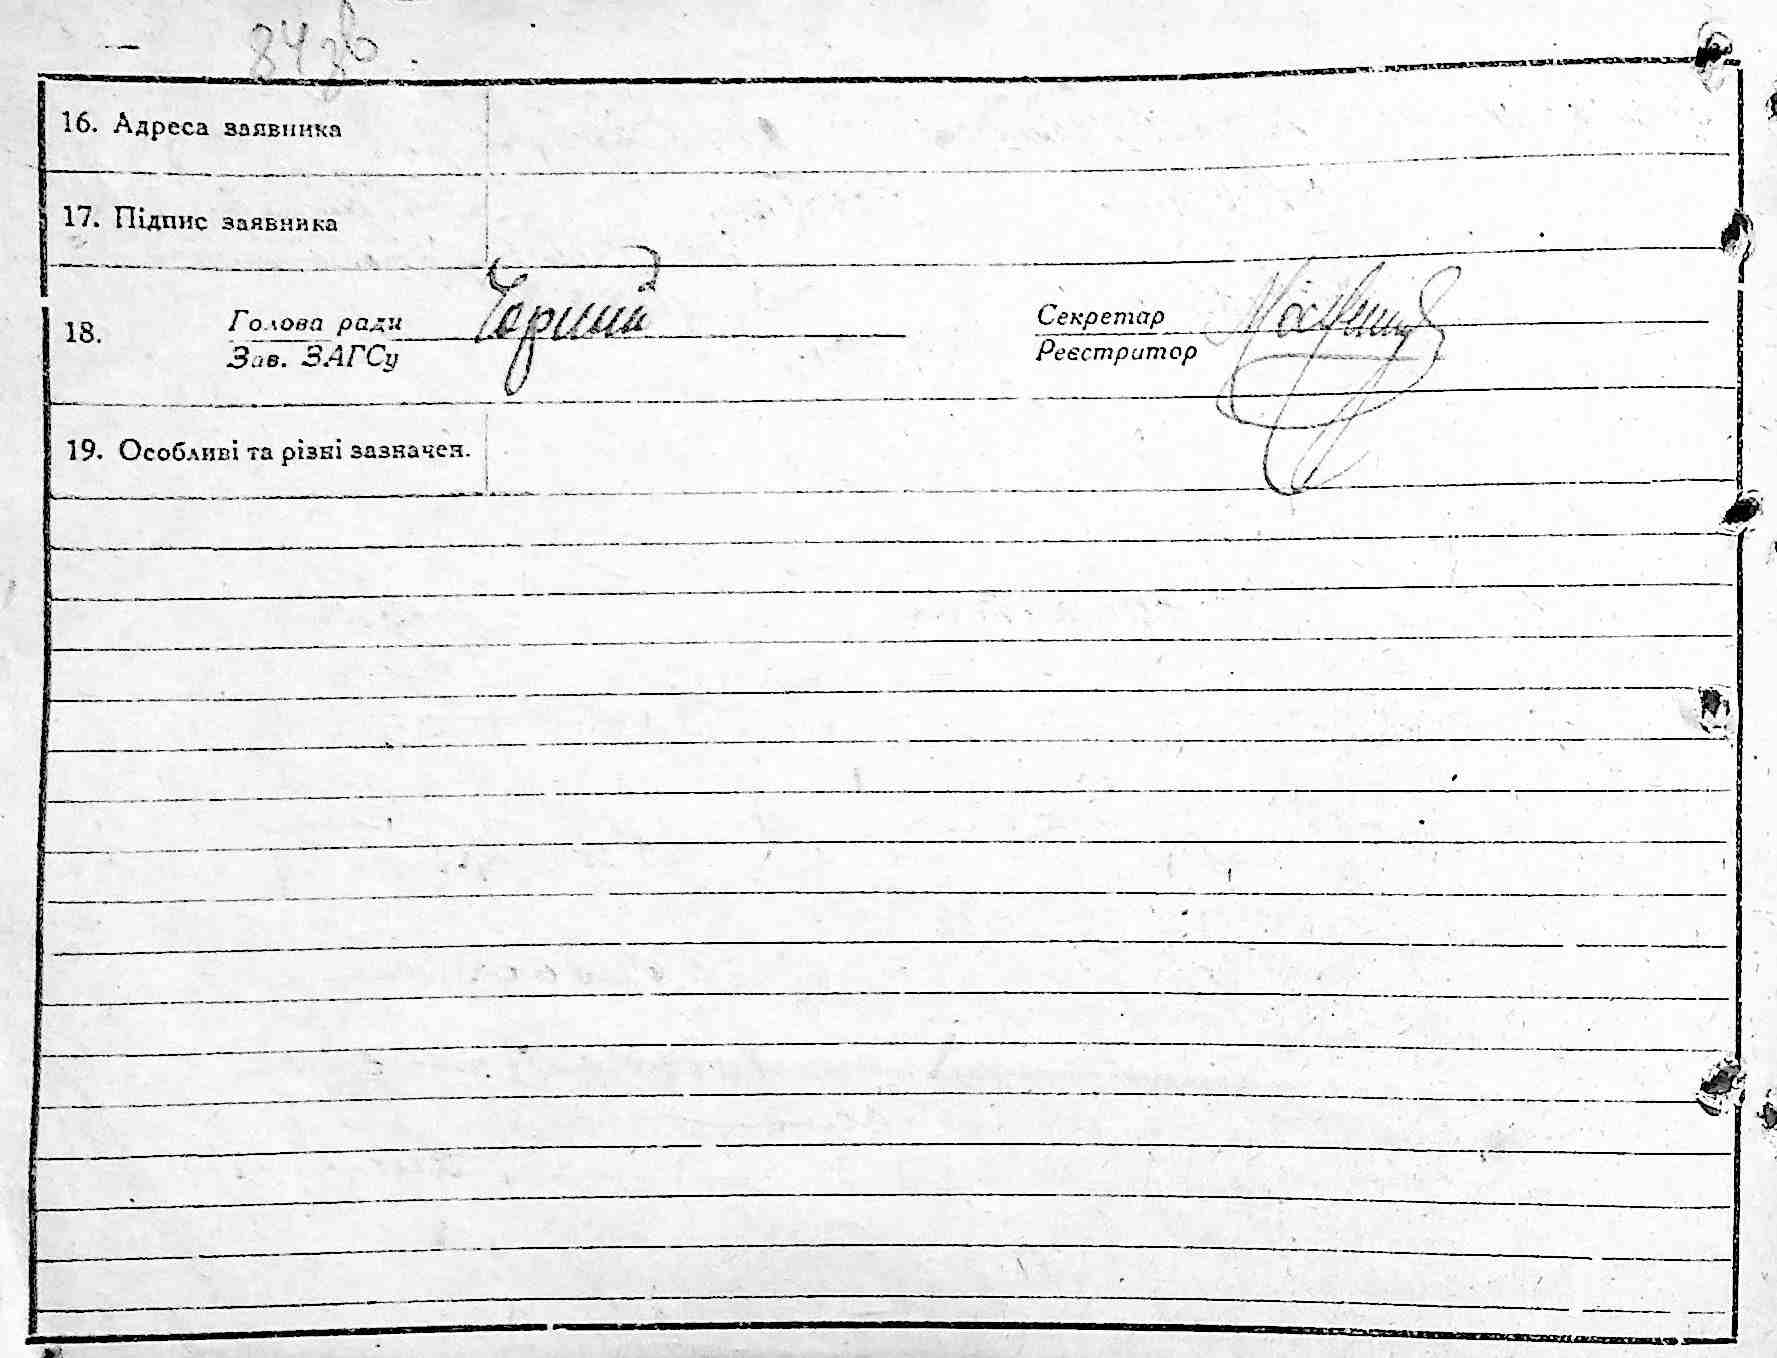 84зв.
16. Адреса заявника
17. Підпис заявника
18. Голова ради Чорний Секретар
Зав. ЗАГСу Реєстратор
19. Особливі та різні зазначен.